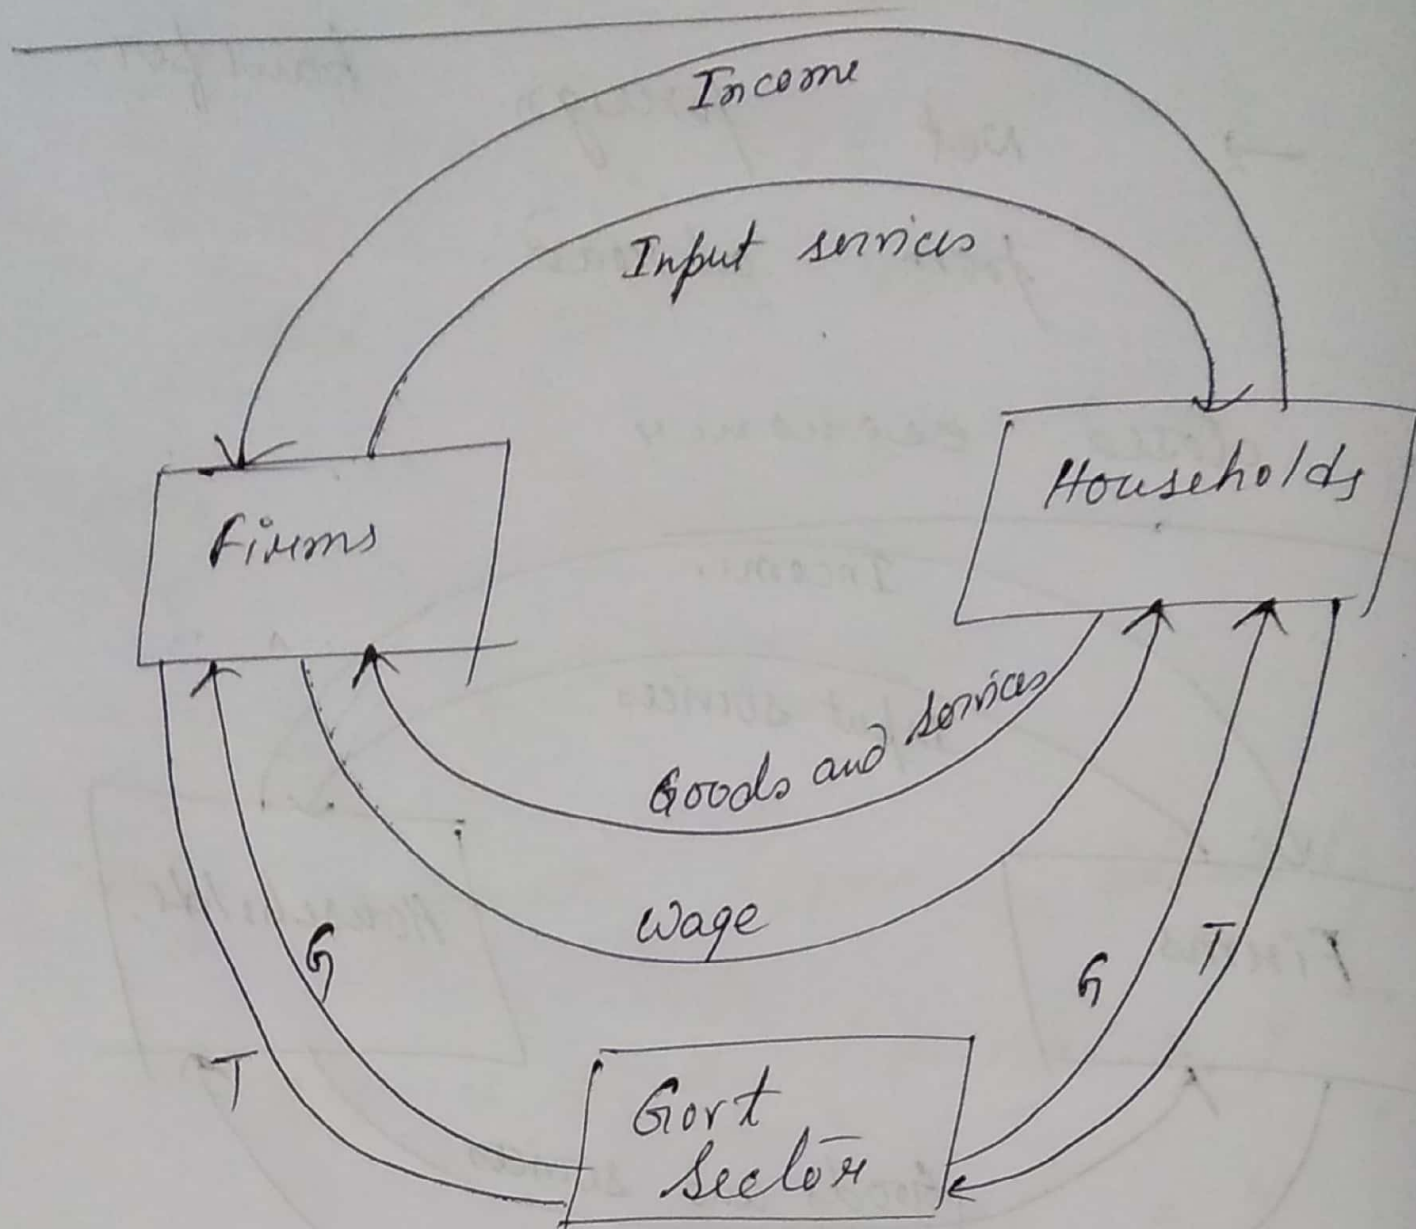 Income
Input services
Firms
Households
Goods and services
Wage
G
T
G
T
Govt
Sector